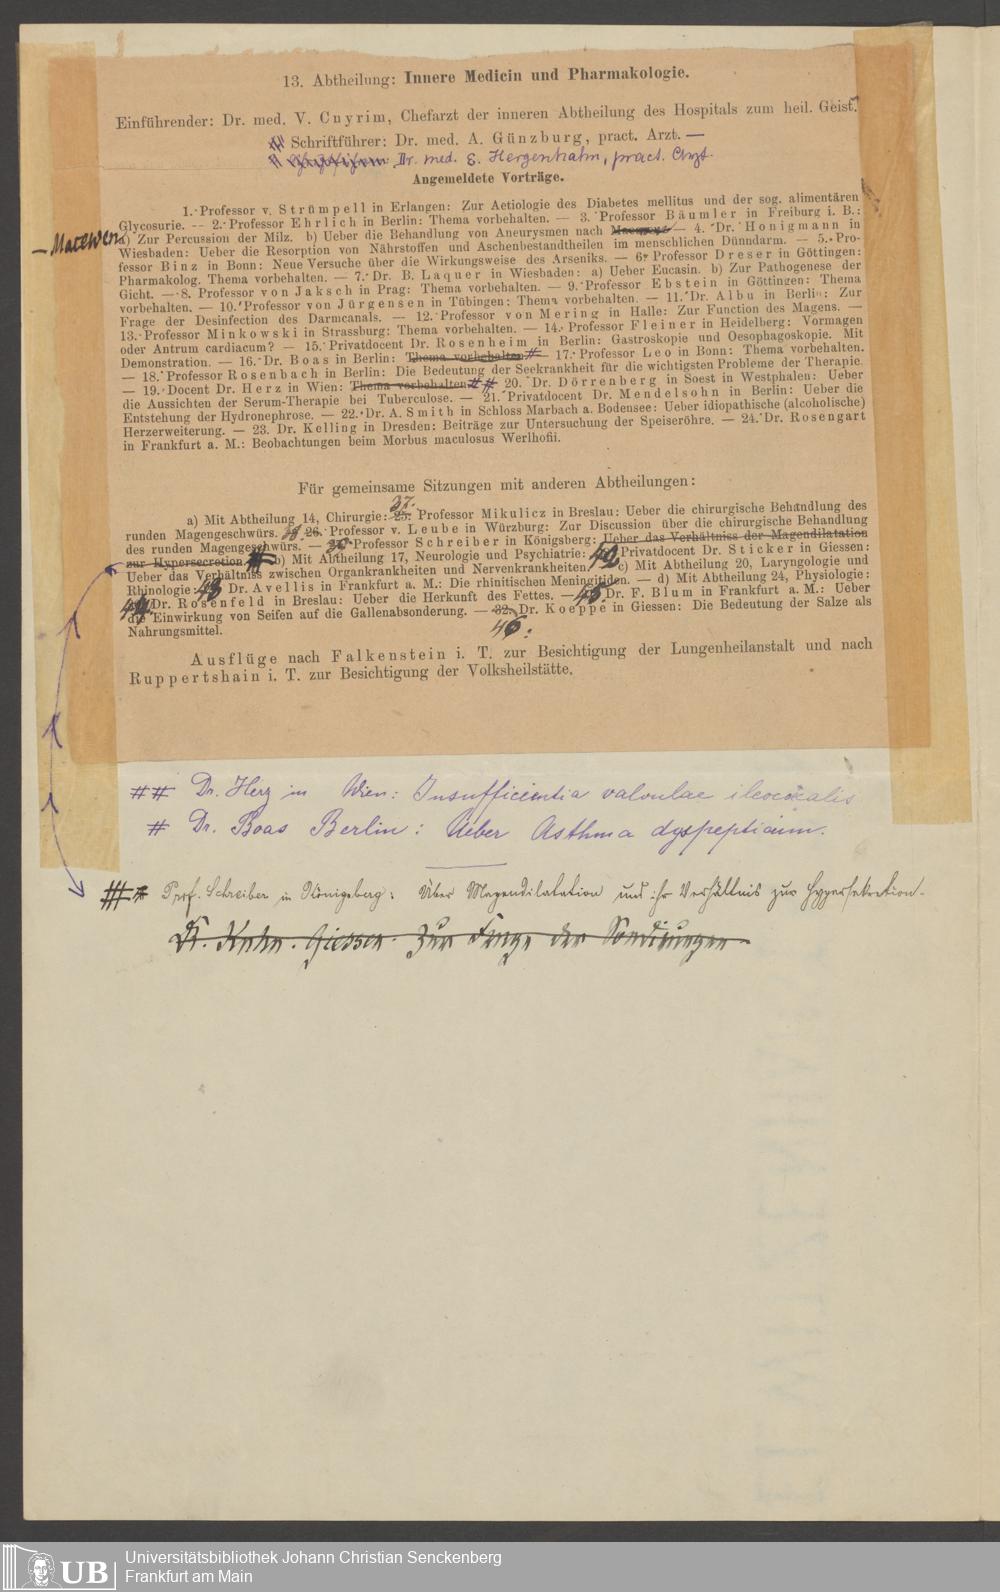 13. Abtheilung: Innere Medicin und Pharmakologie.
Einführender: Dr. med. V. Cnyrim, Chefarzt der inneren Abtheilung des Hospitals zum heil. Geist.
Schriftführer: Dr. med. A. Günzburg, pract. Arzt. —
" Dr. med. E. Hergenhahn, pract. Arzt.
Angemeldete Vorträge.
1. Professor v. Strümpell in Erlangen: Zur Aetiologie des Diabetes mellitus und der sog. alimentären
Glycosurie. — 2. Professor Ehrlich in Berlin: Thema vorbehalten. — 3. Professor Bäumler in Freiburg i. B.:
a) Zur Percussion der Milz. b) Ueber die Behandlung von Aneurysmen nach — 4. Dr. Honigmann in
— Macewen
Wiesbaden: Ueber die Resorption von Nährstoffen und Aschenbestandtheilen im menschlichen Dünndarm. — 5. Pro-
fessor Binz in Bonn: Neue Versuche über die Wirkungsweise des Arseniks. — 6. Professor Dreser in Göttingen:
Pharmakolog. Thema vorbehalten. — 7. Dr. B. Laquer in Wiesbaden: a) Ueber Eucasin. b) Zur Pathogenese der
Gicht. — 8. Professor von Jaksch in Prag: Thema vorbehalten. — 9. Professor Ebstein in Göttingen: Thema
vorbehalten. — 10. Professor von Jürgensen in Tübingen: Thema vorbehalten. — 11. Dr. Albu in Berlin: Zur
Frage der Desinfection des Darmcanals. — 12. Professor von Mering in Halle: Zur Function des Magens. —
13. Professor Minkowski in Strassburg: Thema vorbehalten. — 14. Professor Fleiner in Heidelberg: Vormagen
oder Antrum cardiacum? — 15. Privatdocent Dr. Rosenheim in Berlin: Gastroskopie und Oesophagoskopie. Mit
Demonstration. — 16. Dr. Boas in Berlin: Thema vorbehalten # — 17. Professor Leo in Bonn: Thema vorbehalten.
— 18. Professor Rosenbach in Berlin: Die Bedeutung der Seekrankheit für die wichtigsten Probleme der Therapie.
— 19. Docent Dr. Herz in Wien: Thema vorbehalten # # 20. Dr. Dörrenberg in Soest in Westphalen: Ueber
die Aussichten der Serum-Therapie bei Tuberculose. — 21. Privatdocent Dr. Mendelsohn in Berlin: Ueber die
Entstehung der Hydronephrose. — 22. Dr. A. Smith in Schloss Marbach a. Bodensee: Ueber idiopathische (alcoholische)
Herzerweiterung. — 23. Dr. Kelling in Dresden: Beiträge zur Untersuchung der Speiseröhre. — 24. Dr. Rosengart
in Frankfurt a. M.: Beobachtungen beim Morbus maculosus Werlhofii.
Für gemeinsame Sitzungen mit anderen Abtheilungen:
37.
a) Mit Abtheilung 14, Chirurgie: 25. Professor Mikulicz in Breslau: Ueber die chirurgische Behandlung des
runden Magengeschwürs. 38. 26. Professor v. Leube in Würzburg: Zur Discussion über die chirurgische Behandlung
des runden Magengeschwürs. — 39. Professor Schreiber in Königsberg: Ueber das Verhältniss der Magendilatation
zur Hypersecretion # b) Mit Abtheilung 17, Neurologie und Psychiatrie: 40. Privatdocent Dr. Sticker in Giessen:
Ueber das Verhältniss zwischen Organkrankheiten und Nervenkrankheiten. c) Mit Abtheilung 20, Laryngologie und
Rhinologie: 43 Dr. Avellis in Frankfurt a. M.: Die rhinitischen Meningitiden. — d) Mit Abtheilung 24, Physiologie:
44. Dr. Rosenfeld in Breslau: Ueber die Herkunft des Fettes. — 45. Dr. F. Blum in Frankfurt a. M.: Ueber
die Einwirkung von Seifen auf die Gallenabsonderung. — 32. Dr. Koeppe in Giessen: Die Bedeutung der Salze als
Nahrungsmittel.
46.
Ausflüge nach Falkenstein i. T. zur Besichtigung der Lungenheilanstalt und nach
Ruppertshain i. T. zur Besichtigung der Volksheilstätte.
## Dr. Herz in Wien: Insufficientia valvulae ileocoecalis
# Dr. Boas Berlin: Ueber Asthma dyspepticum.
### Prof. Schreiber in Königsberg: Über Magendilatation und ihr Verhältnis zur Hypersekretion.
Dr. Kuhn. Giessen. Zur Frage der Sondirungen
Universitätsbibliothek Johann Christian Senckenberg
Frankfurt am Main
UB